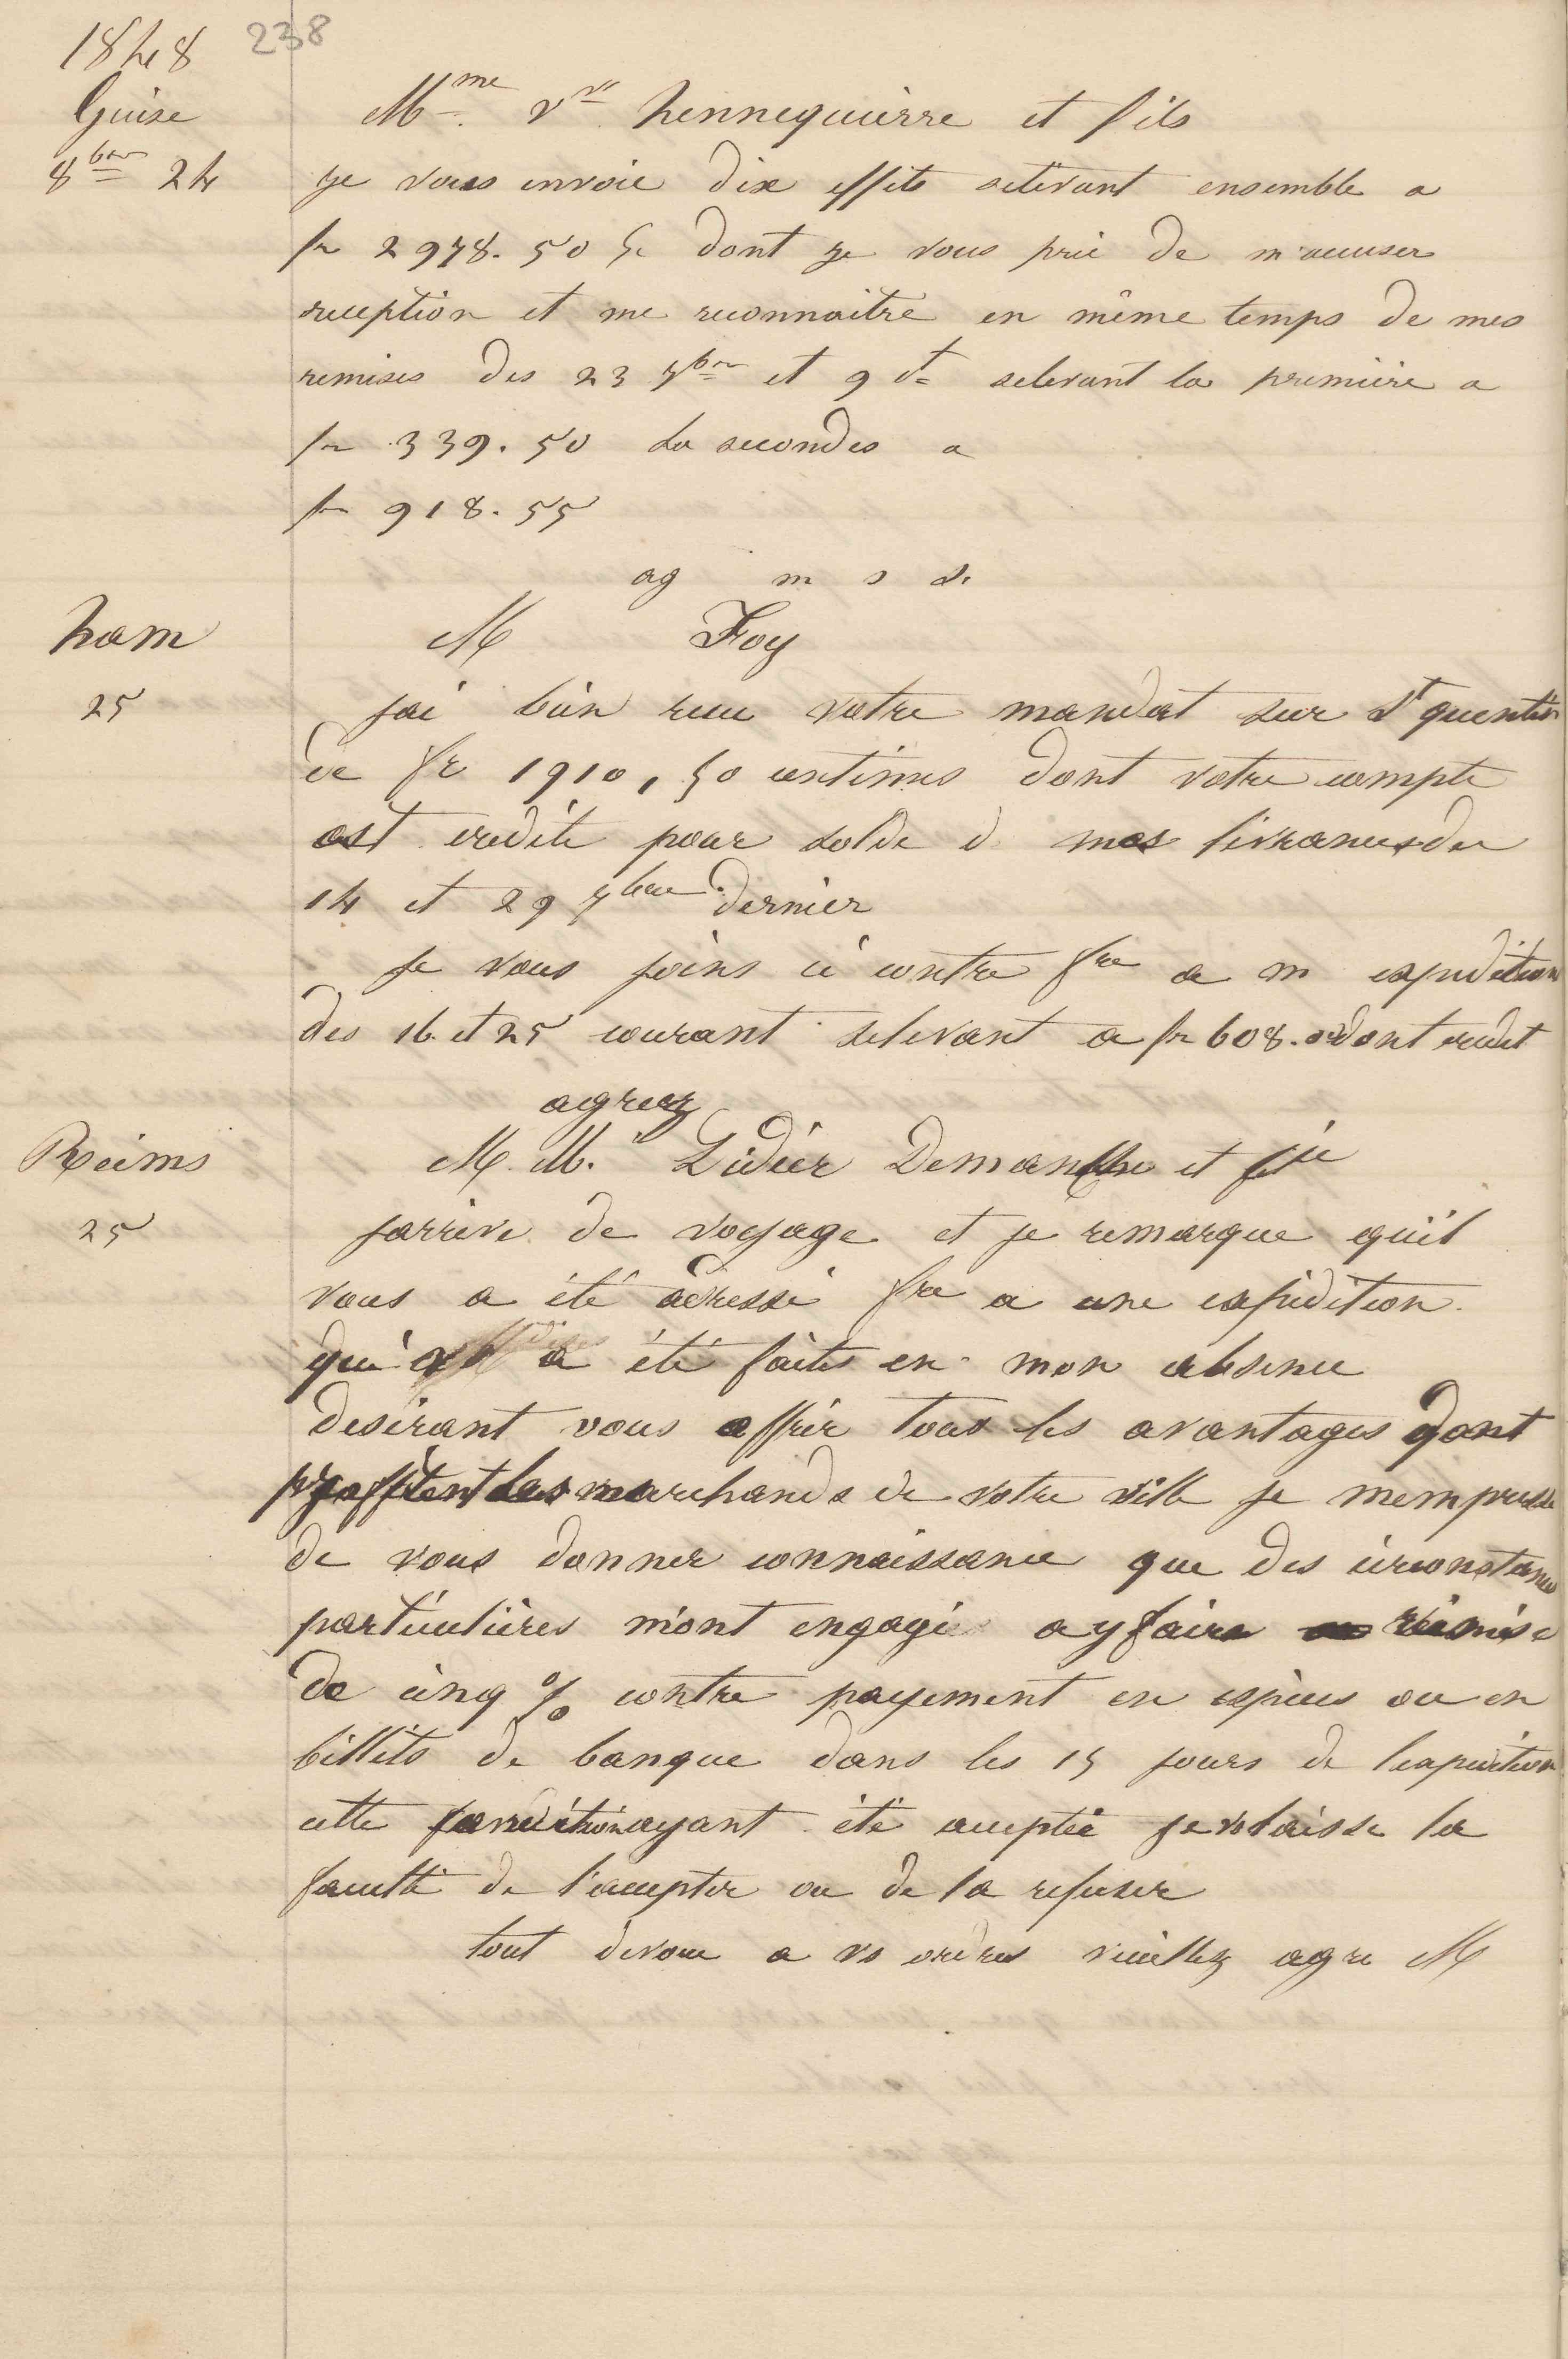 1848 238
Guise
8bre 24
Mme vve hennequierre et fils
je vous envoie dix effets sélevant ensemble a
fr 2978. 50 dont je vous prie de m'accuser
reception et me reconnaitre en même temps de mes
remises des 23 7bre et 9 ct selevant la première a
fr 339. 50 la secondes a
fr 918. 55
ag m s
ham
25
M Foy
jai bien recu votre mandat sur St quentin
de fr 1910, 50 centimes dont votre compte
est credité pour solde d mes livrances du
14 et 29 7bre dernier
Je vous joins ci contre fre a m expedition
des 16 et 25 courant selevant a fr 608. dont credit
agreez
Reims
25
M. M. Didier Demanche et fje
jarrive de voyage et je remarque quil
vous a été adressé fre a une expédition
qui a été faite en mon absence
desirant vous offrir tous les avantages dont
proffitent les marchands de votre ville je mempresse
de vous donner connaissance que des circonstances
particulières m'ont engagé a y faire remise
de cinq % contre payement en espèces ou en
billets de banque dans les 15 jours de lexpedition
cette condition ayant été acceptée je vs laisse la
faculté de l'accepter ou de la refuser
tout devoue a vs ordres veuillez agre M